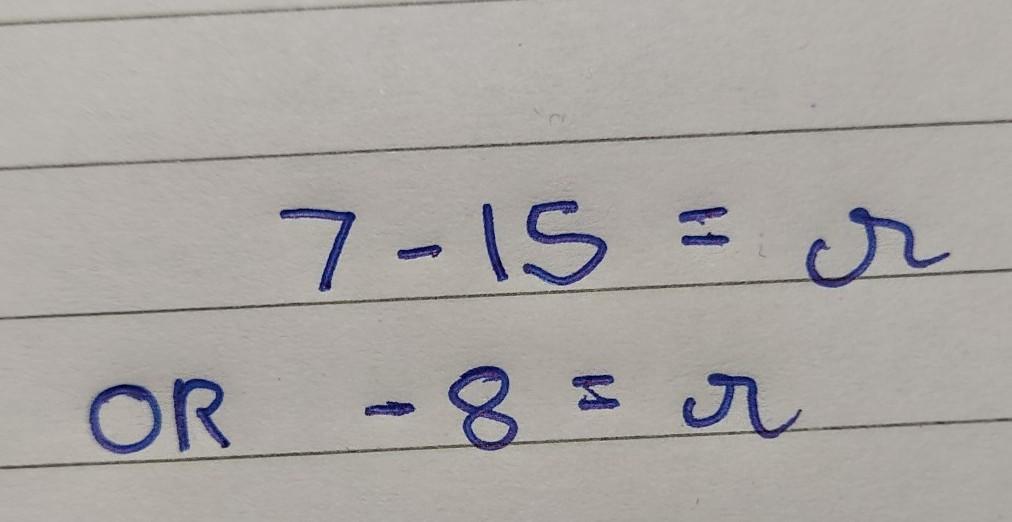 7 - 15 = r
OR - 8 = r